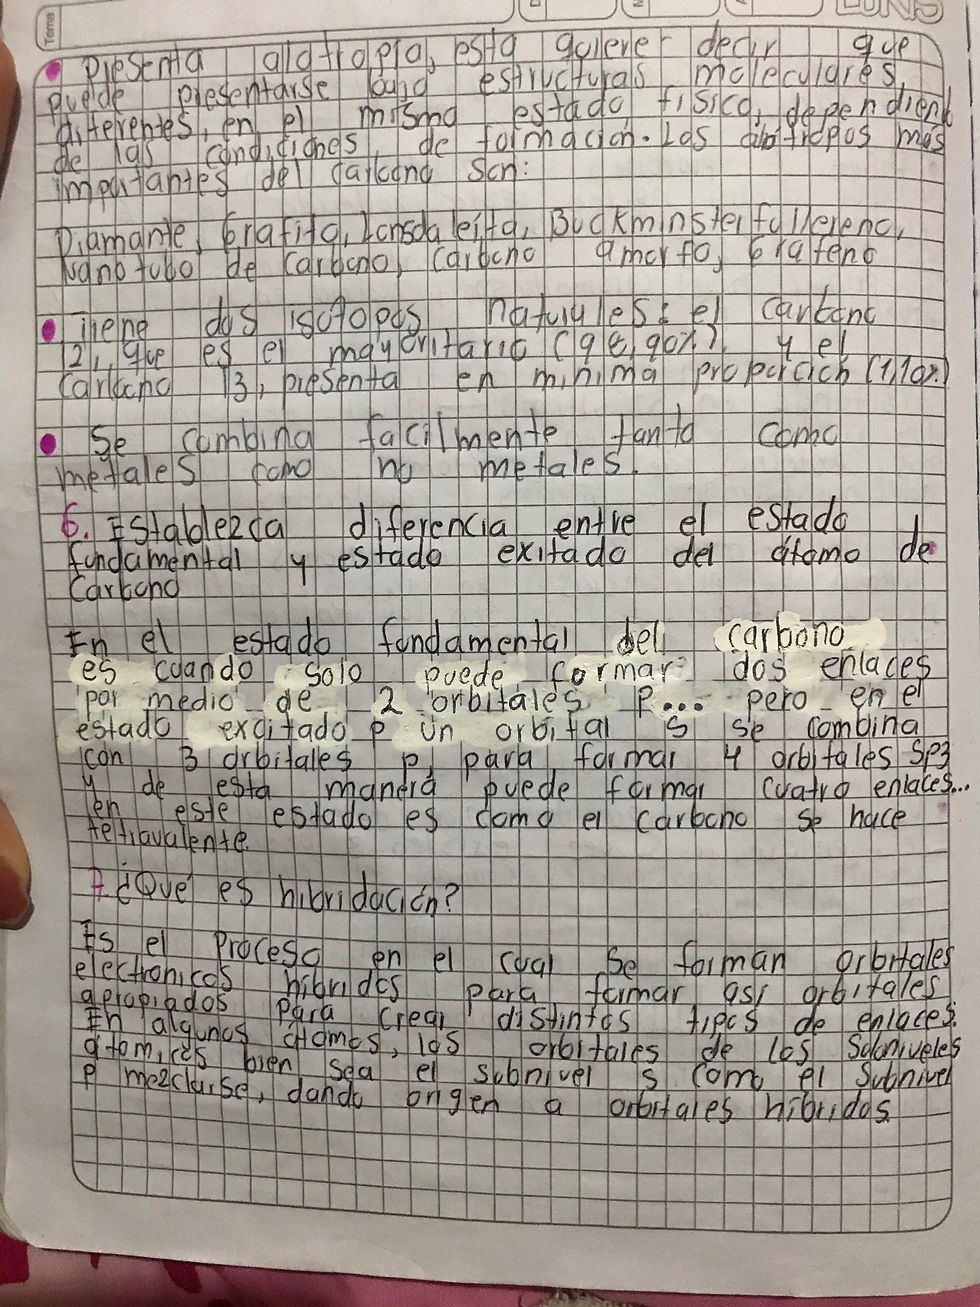 Tema
LUNS
• Presenta alotropia, esto quierer decir que
puede presentarse bajo estructuras moleculares,
diferentes, en el mismo estado fisico, dependiend
de las condiciones, de formacion. Los alotropos mas
importantes del carbono son:
Diamante, Grafito, Lonsdaleita, Buckminsterfullereno,
Nanotubo de Carbono, Carbono amorfo, Grafeno
• Tiene dos isotopos naturales: el carbono
12, que es el mayoritario (98,90%), y el
carbono 13, presenta en minima proporcion (1,10%)
• Se combina facilmente tanto como
metales como no metales.
6. Establezca diferencia entre el estado
fundamental y estado exitado del átomo de
Carbono
En el estado fundamental del carbono
es cuando solo puede formar dos enlaces
por medio de 2 orbitales P... pero en el
estado excitado p un orbital s se combina
con 3 orbitales p para formar 4 orbitales sp3
y de esta manera puede formar cuatro enlaces...
en este estado es como el carbono se hace
tetravalente.
7. ¿Qué es hibridación?
Es el proceso en el cual se forman orbitales
electronicos hibridos para formar asi orbitales
apropiados para crear distintos tipos de enlaces.
En algunos atomos, los orbitales de los subniveles
atomicos bien sea el subnivel s como el subnivel
p mezclarse, dando origen a orbitales hibridos